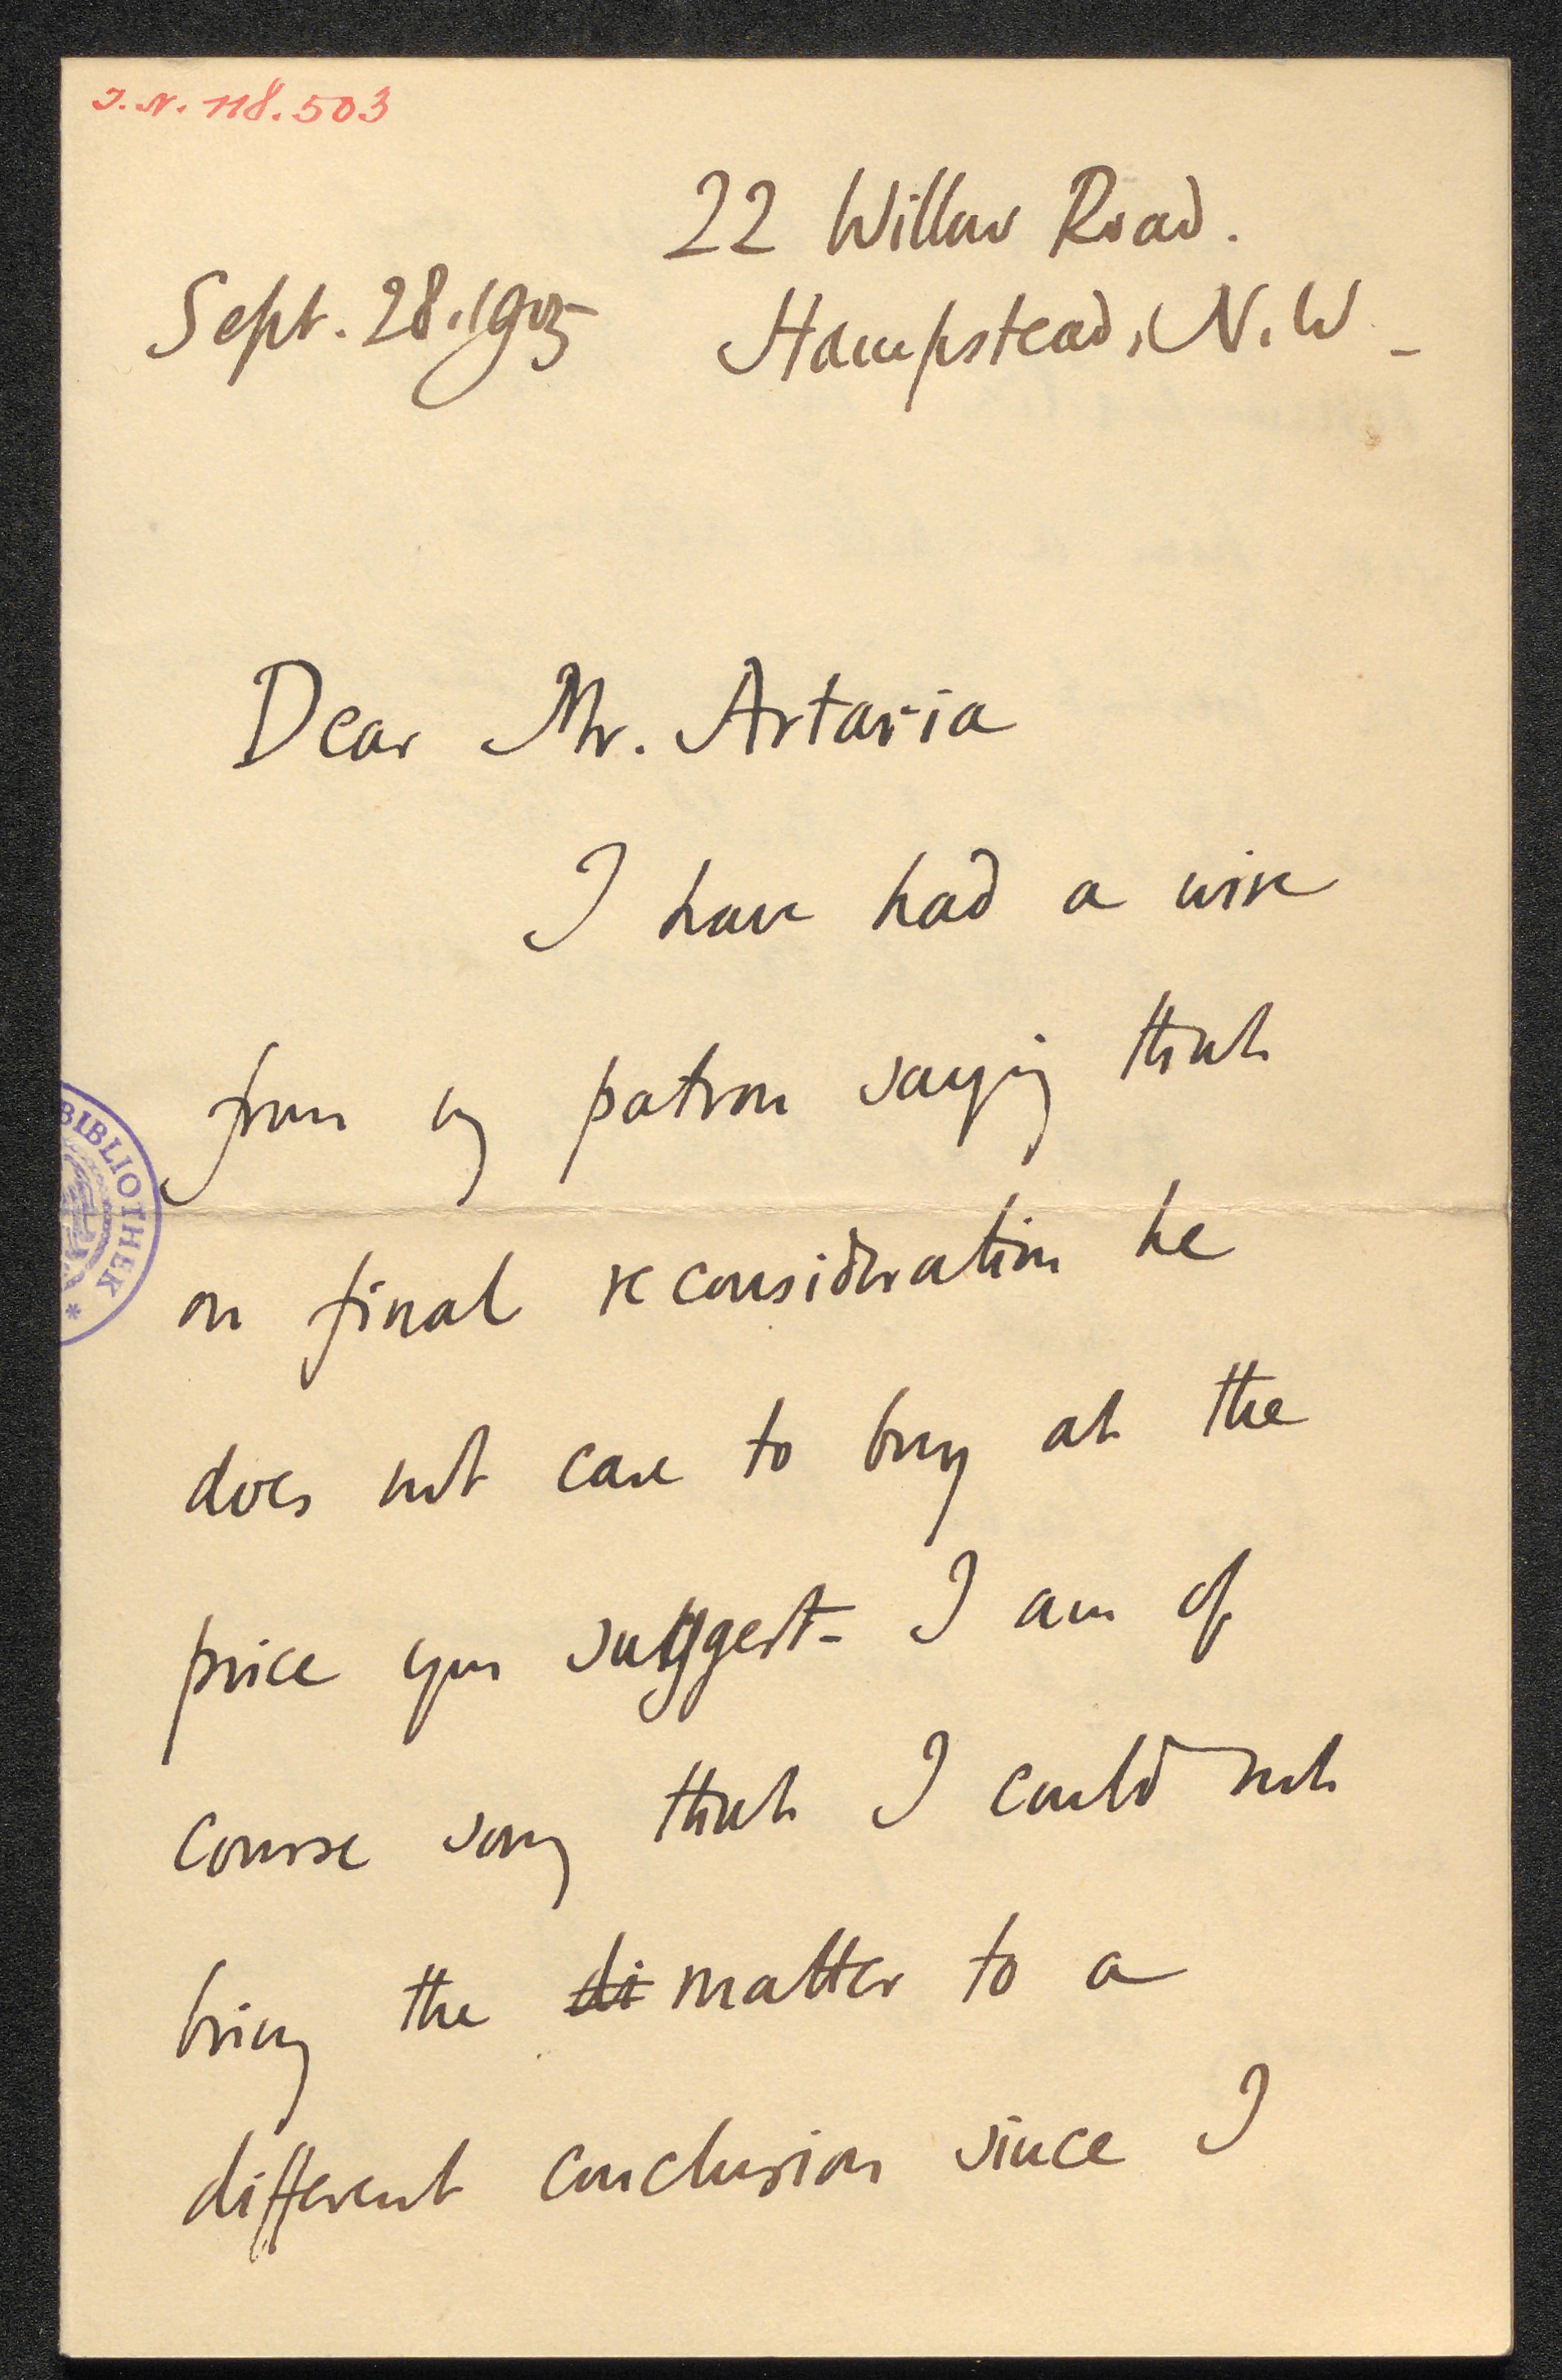 J. N. 118.503
22 Willow Road.
Sept. 28. 1905 Hampstead, N.W.
Dear Mr. Artaria
I have had a wire
from my patron saying that
on final reconsideration he
does not care to buy at the
price you suggest - I am of
course sorry that I could not
bring the di matter to a
different conclusion since I
BIBLIOTHEK *